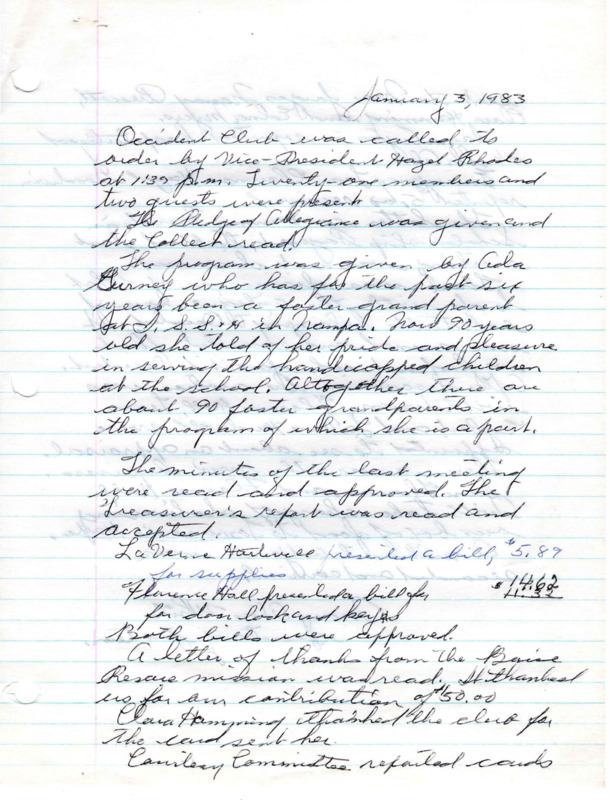 January 3, 1983
Occident Club was called to
order by Vice-President Hazel Rhodes
at 1:39 p.m. Twenty-one members and
two guests were present.
The Pledge of Allegiance was given and
the Collect read.
The program was given by Ada
Gurney who has for the past six
years been a foster grand parent
at I. S. S. & H in Nampa. Now 90 years
old she told of her pride and pleasure
in serving the handicapped children
at the school. Altogether there are
about 90 foster grandparents in
the program of which she is a part.
The minutes of the last meeting
were read and approved. The
Treasurer's report was read and
accepted.
LaVerne presented a bill, $5.89
for supplies
Florence Hall presented a bill for $14.62
for door lock and keys
Both bills were approved.
A letter of thanks from the Boise
Rescue mission was read. It thanked
us for our contribution of $50.00
Clara Hamming thanked the club for
the card sent her.
Courtesy Committee reported cards